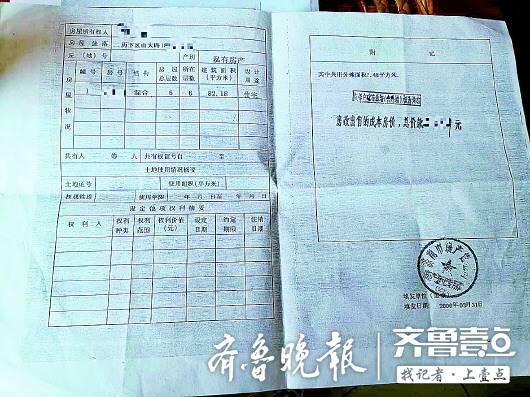 房屋所有权人
房屋坐落
历下区山大路
丘（地）号
产别
私有房产
幢号
房号
结构
房屋总层数
所在层数
建筑面积（平方米）
设计用途
房屋状况
综合
6
6
82.18
住宅
共有人
等
人
共有权证号自
至
土地使用情况摘要
土地证号
使用面积（平方米）
权属性质
使用年限
年
月
日至
年
月
日
设定他项权利摘要
权利人
权利种类
权利范围
权利价值（元）
设定日期
约定期限
注销日期
附
记
其中共用分摊面积7.48平方米。
房改出售的成本房价，总价款
元
填发单位（盖章）
填发日期：
齐鲁晚报
齐鲁壹点
找记者·上壹点